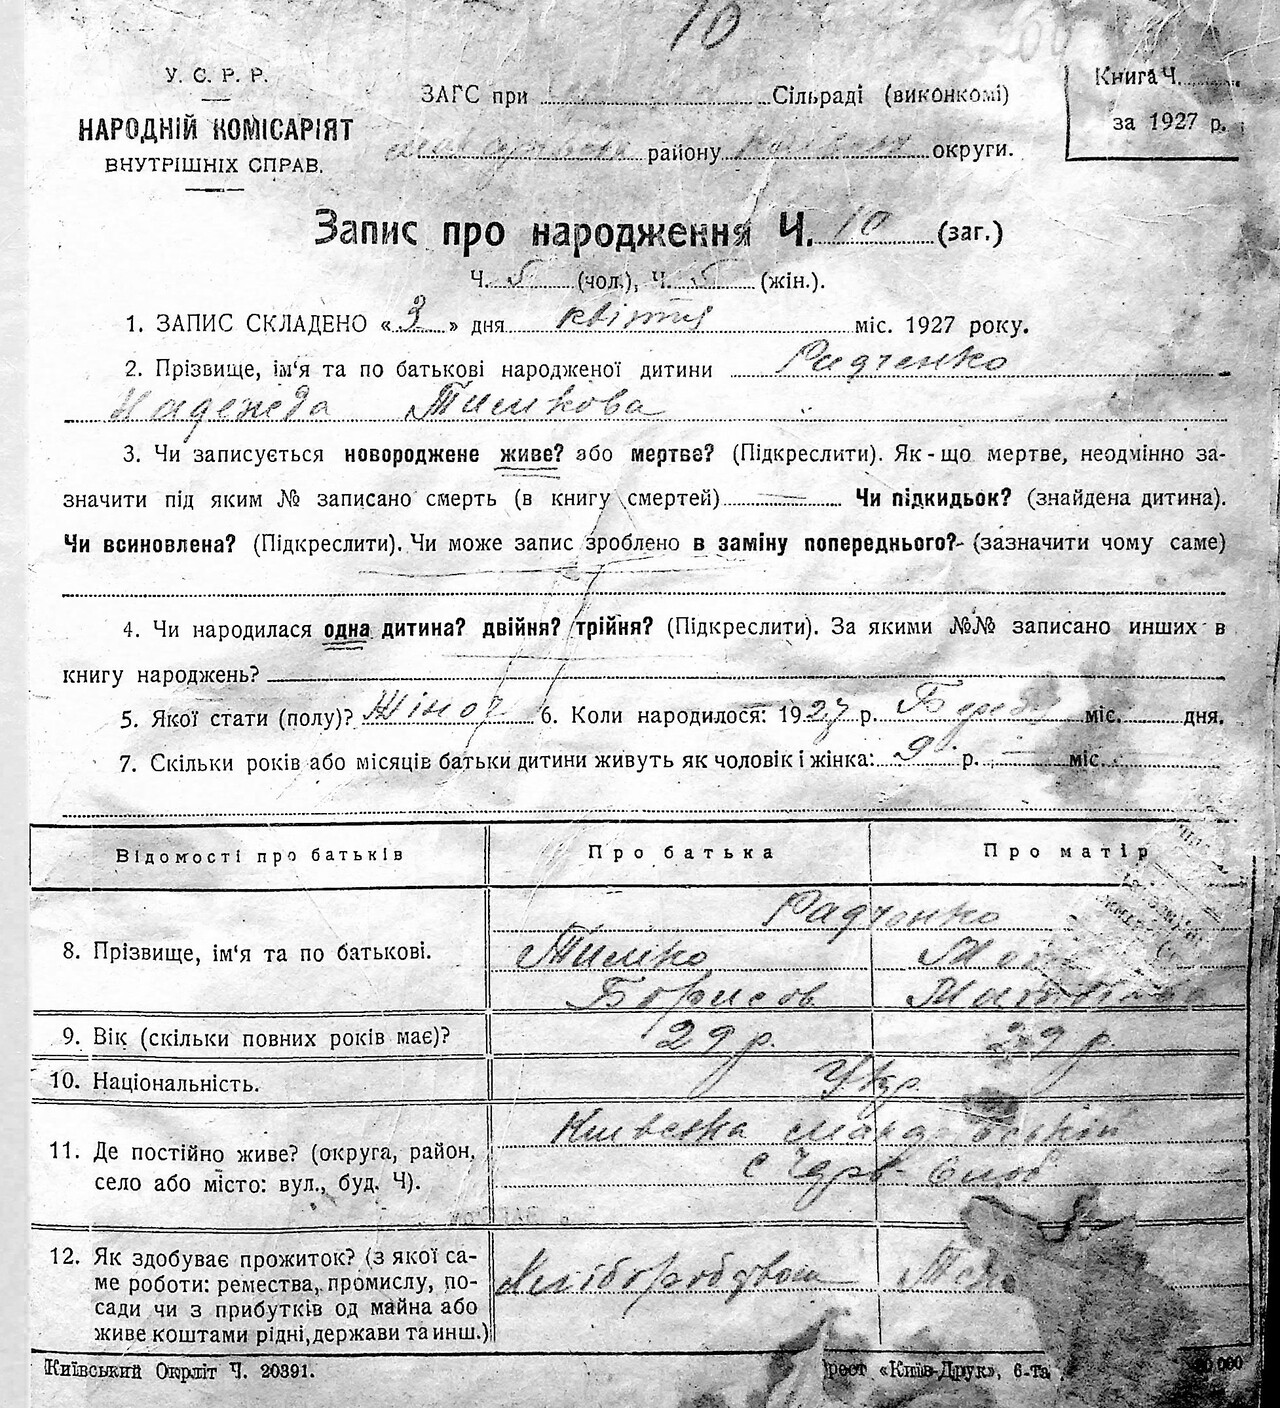 10
У. С. Р. Р.
НАРОДНІЙ КОМІСАРІЯТ
ВНУТРІШНІХ СПРАВ.
ЗАГС при Сільраді (виконкомі)
району округи.
Книга Ч.
за 1927 р.
Запис про народження Ч. 10 (заг.)
Ч. 5 (чол.), Ч. 5 (жін.).
1. ЗАПИС СКЛАДЕНО «3» дня квітня міс. 1927 року.
2. Прізвище, ім'я та по батькові народженої дитини Радченко
Надежда Тимкова
3. Чи записується новороджене живе? або мертве? (Підкреслити). Як-що мертве, неодмінно за-
значити під яким № записано смерть (в книгу смертей) Чи підкидьок? (знайдена дитина).
Чи всиновлена? (Підкреслити). Чи може запис зроблено в заміну попереднього?- (зазначити чому саме)
4. Чи народилася одна дитина? двійня? трійня? (Підкреслити). За якими №№ записано инших в
книгу народжень?
5. Якої стати (полу)? Жіноч 6. Коли народилося: 1927 р. міс. дня.
7. Скільки років або місяців батьки дитини живуть як чоловік і жінка: 9 р. міс
Відомості про батьків
Про батька
Про матір
8. Прізвище, ім'я та по батькові.
Радченко
Тимко
Борисов
9. Вік (скільки повних років має)?
29 р.
29 р.
10. Національність.
Укр.
11. Де постійно живе? (округа, район,
село або місто: вул., буд. Ч).
Київська
с Черв- Слоб
12. Як здобуває прожиток? (з якої са-
ме роботи: ремества, промислу, по-
сади чи з прибутків од майна або
живе коштами рідні, держави та инш.)
Хліборобством
Київський Окрліт Ч. 20391.
«Київ-Друк», 6-та